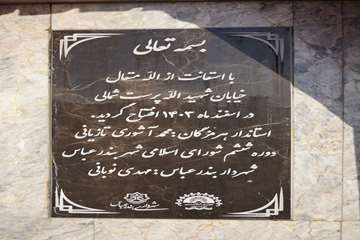 بسمه تعالی
با استعانت از الله متعال
خیابان شهید الله پرست شمالی
در اسفند ماه ۱۴۰۳ افتتاح گردید.
استاندار هرمزگان : محمد آشوری تازیانی
دوره ششم شورای اسلامی شهر بندرعباس
شهردار بندرعباس : مهدی نوبانی